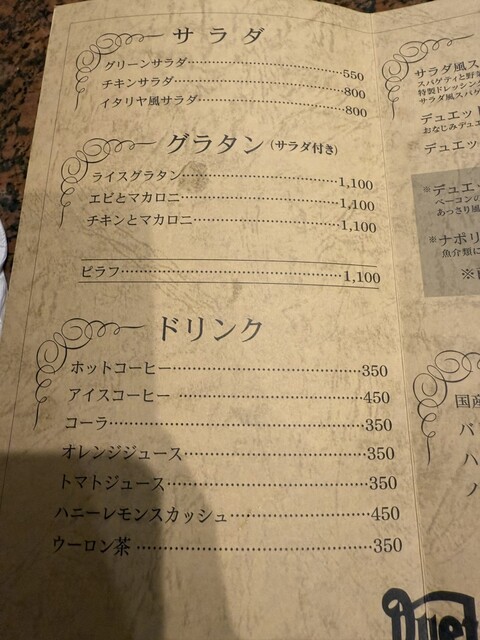 サラダ
グリーンサラダ……………………550
チキンサラダ……………………800
イタリヤ風サラダ……………………800
グラタン（サラダ付き）
ライスグラタン……………………1,100
エビとマカロニ……………………1,100
チキンとマカロニ……………………1,100
ピラフ……………………1,100
ドリンク
ホットコーヒー……………………350
アイスコーヒー……………………450
コーラ……………………350
オレンジジュース……………………350
トマトジュース……………………350
ハニーレモンスカッシュ……………………450
ウーロン茶……………………350
サラダ風ス
スパゲティと野菜
特製ドレッシング
サラダ風スパゲ
デュエット
おなじみデュエ
デュエッ
※デュエ
ベーコンの
あっさり風
※ナポリ
魚介類に
※
国産
バ
ハ
Duet